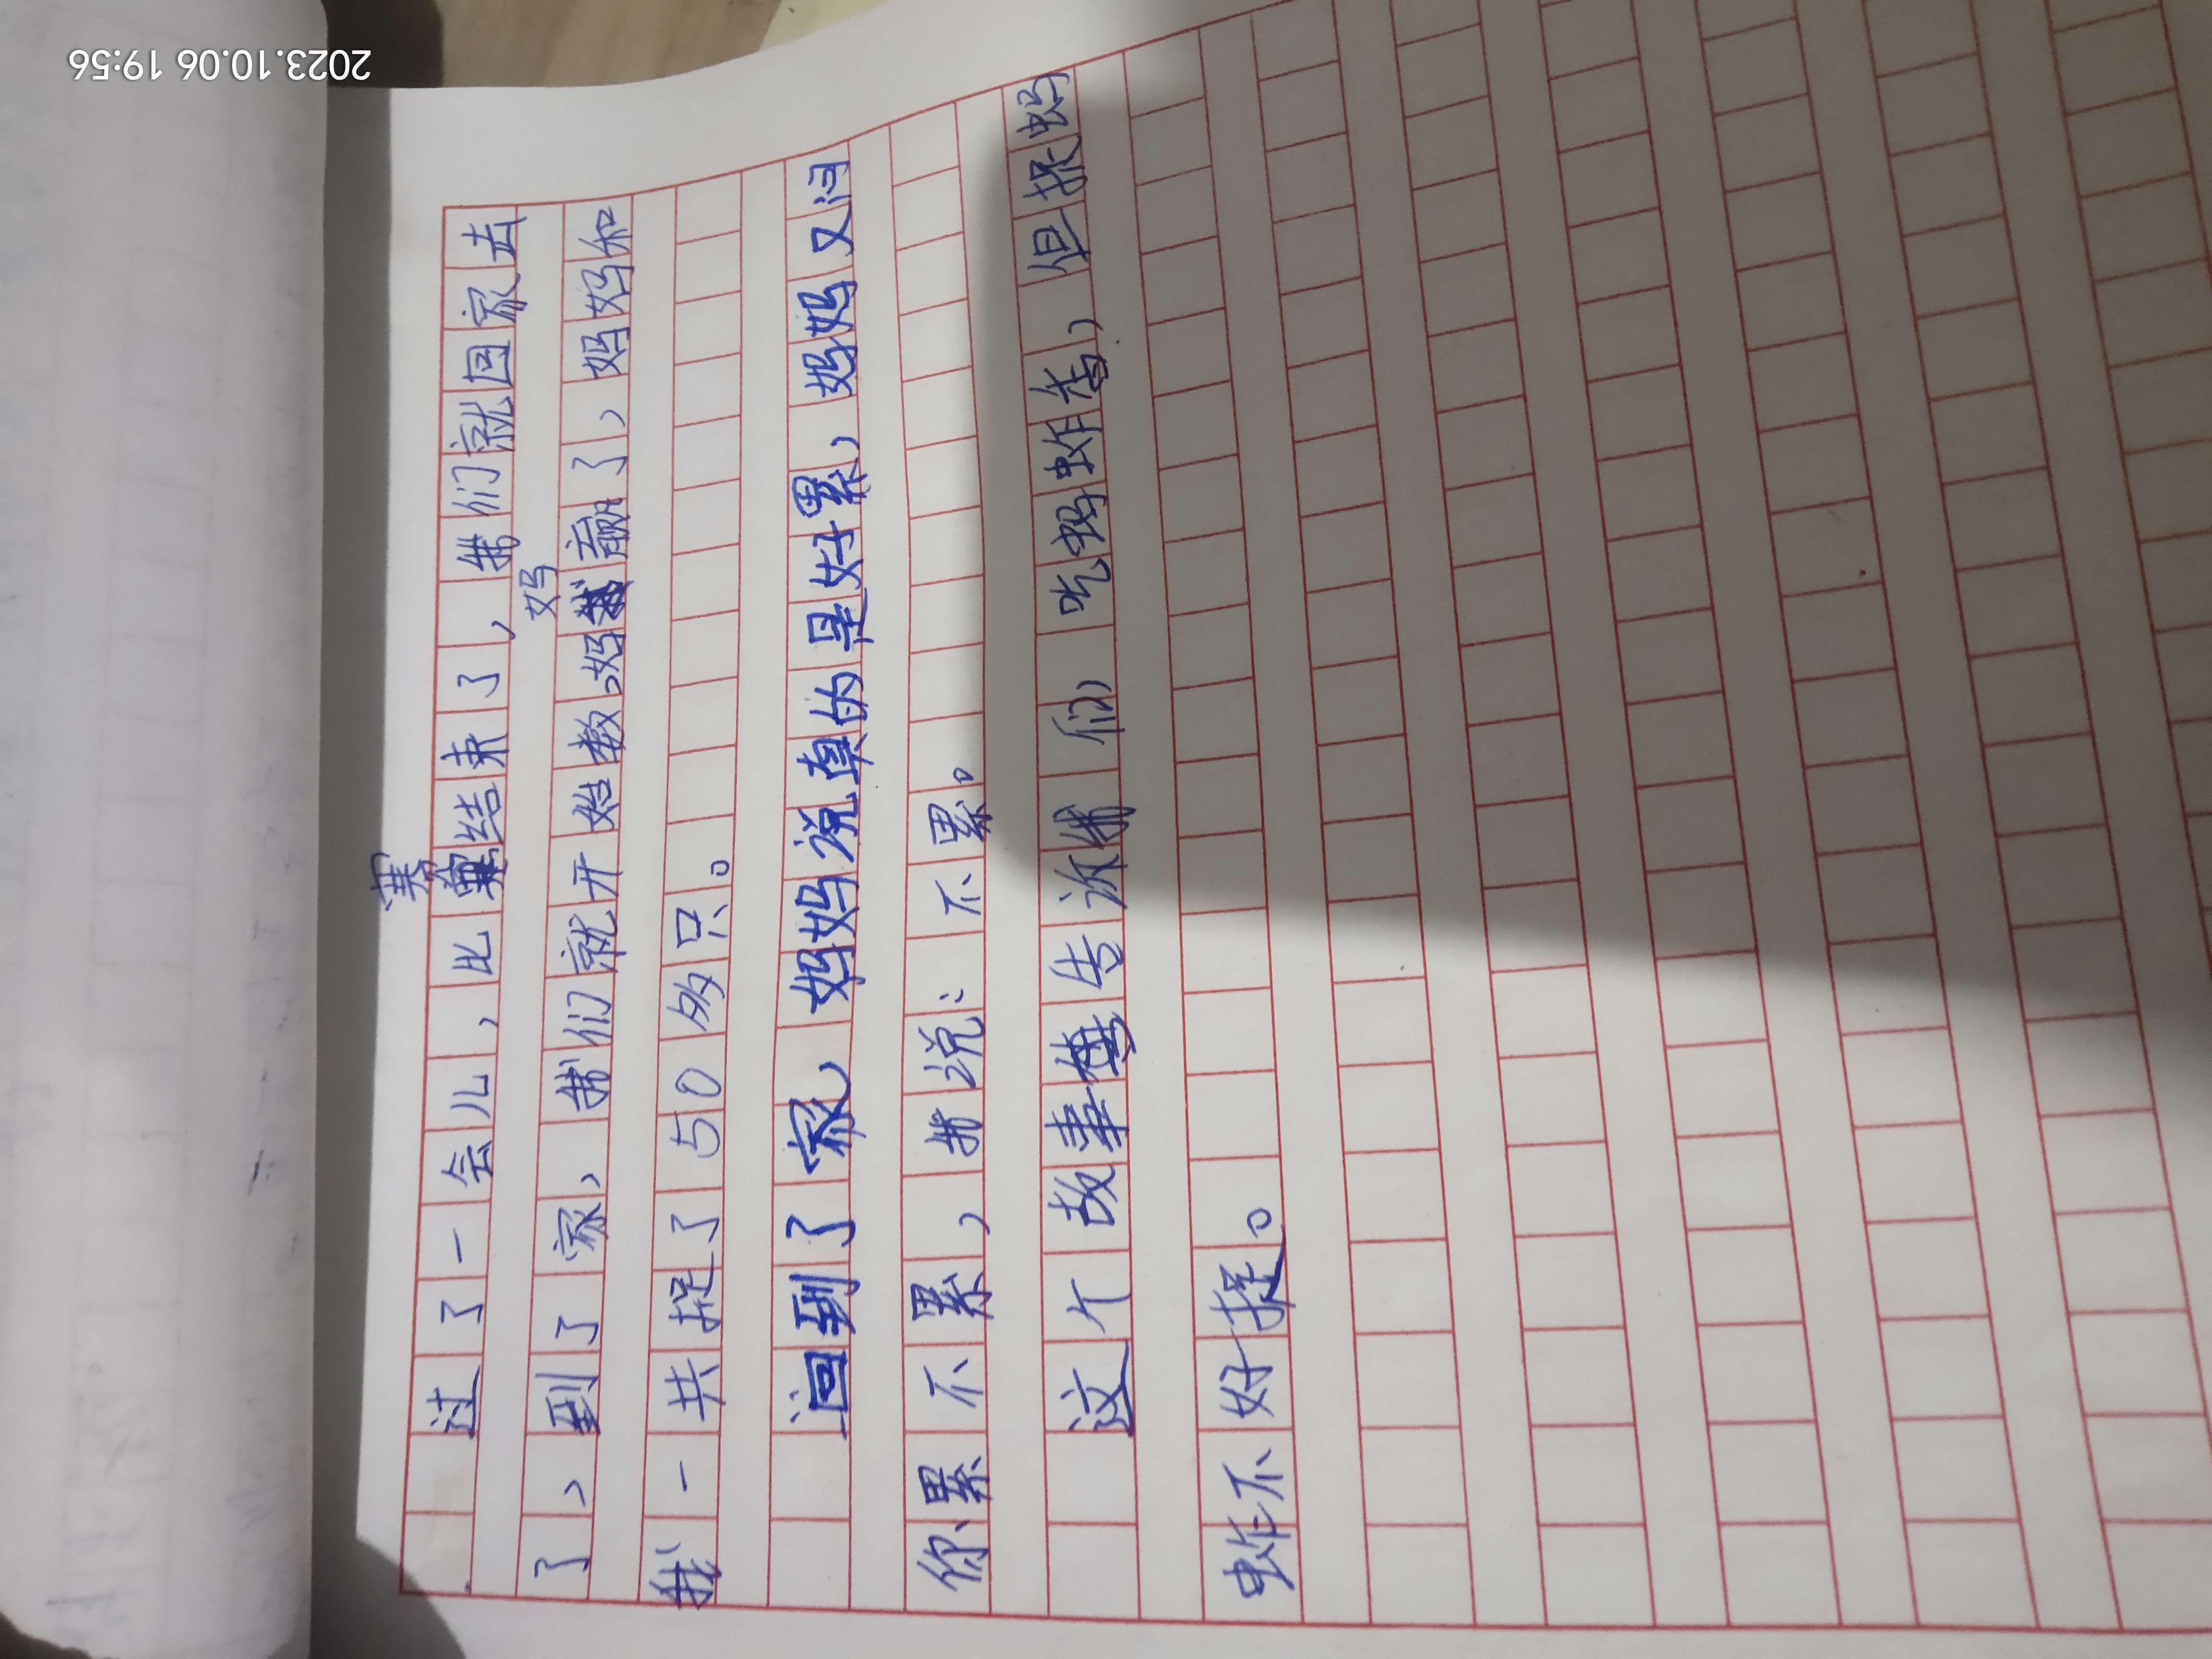 过了一会儿，比赛结束了，我们就回家去
了，到了家，我们就开始数。妈妈赢了，妈妈和
我一共捉了50多只。
回到了家，妈妈说真的是好累，妈妈又问
你累不累，我说：不累。
这个故事告诉我们，吃蚂蚱香，但捉蚂
蚱不好捉。
2023.10.06 19:56